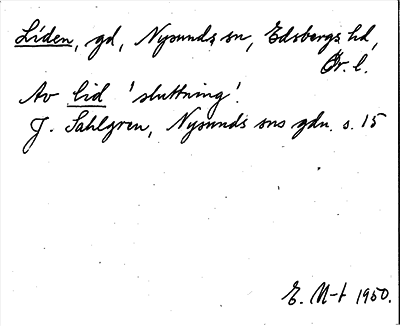 Líden, gd, Nysunds sn, Edsbergs hd,
Ör. l.
Av lid 'sluttning'.
J. Sahlgren, Nysunds sns gdn. s. 15
E. M-t 1950.